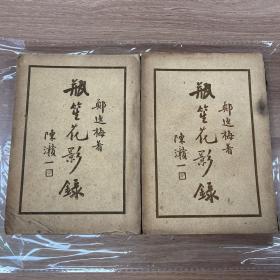 鄭逸梅著
瓶笙花影錄
陳瀏一
鄭逸梅著
瓶笙花影錄
陳瀏一